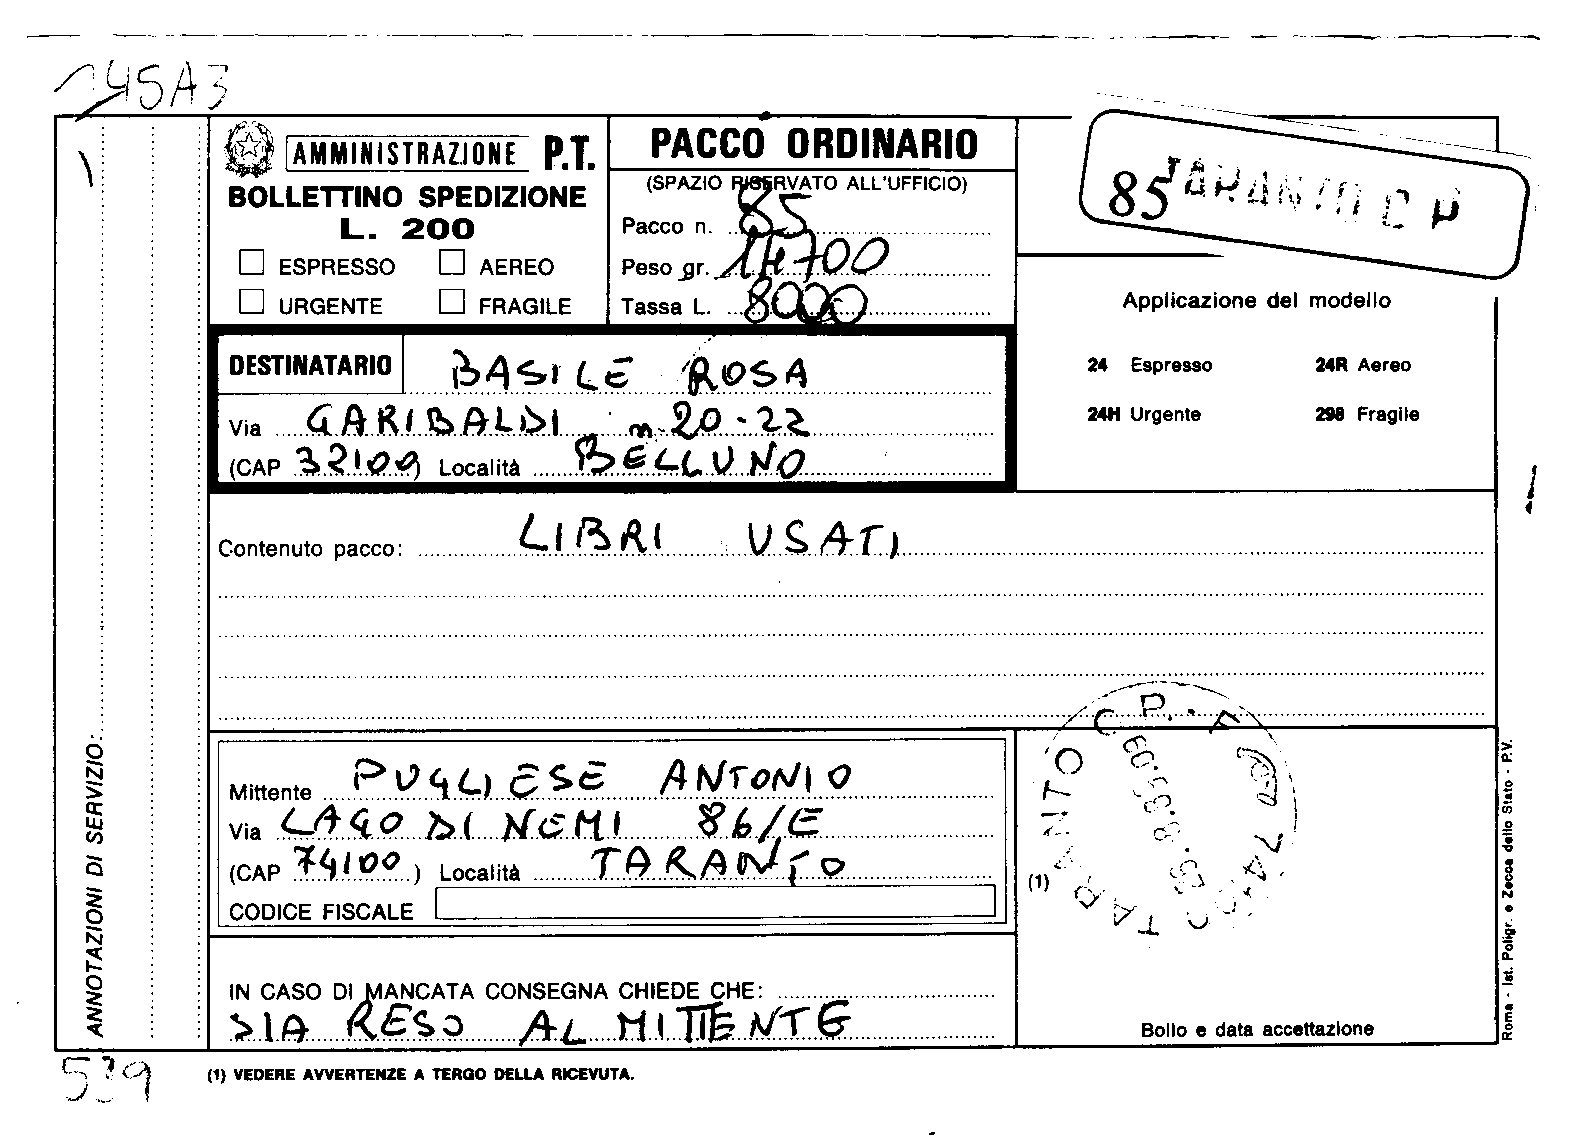 145A3
AMMINISTRAZIONE P.T.
BOLLETTINO SPEDIZIONE
L. 200
ESPRESSO AEREO
URGENTE FRAGILE
PACCO ORDINARIO
(SPAZIO RISERVATO ALL'UFFICIO)
Pacco n. 85
Peso gr. 14700
Tassa L. 8000
85 TARANTO C P
Applicazione del modello
24 Espresso 24R Aereo
24H Urgente 298 Fragile
DESTINATARIO BASILE ROSA
Via GARIBALDI n. 20-22
(CAP 32100) Località BELLUNO
Contenuto pacco: LIBRI USATI
Mittente PUGLIESE ANTONIO
Via LAGO DI NEMI 86/E
(CAP 74100) Località TARANTO
CODICE FISCALE
IN CASO DI MANCATA CONSEGNA CHIEDE CHE:
SIA RESO AL MITTENTE
TARANTO C.P.
(1)
Bollo e data accettazione
ANNOTAZIONI DI SERVIZIO:
Roma - Ist. Poligr. e Zecca dello Stato - P.V.
539
(1) VEDERE AVVERTENZE A TERGO DELLA RICEVUTA.